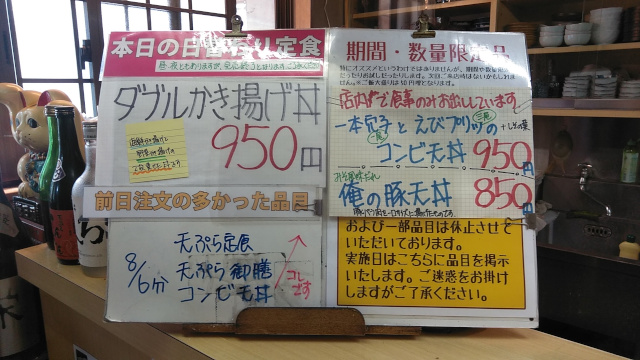 本日の日替り定食
ダブルかき揚げ丼
950円
前日注文の多かった品目
8/6分
天ぷら定食
天ぷら御膳
コンビ天丼
コレです
期間・数量限定品
店内で食事のみお出ししています
一本穴子とえびプリッの
コンビ天丼 950円
俺の豚天丼 850円
および一部品目は休止させて
いただいております。
実施日はこちらに品目を掲示
いたします。ご迷惑をお掛け
しますがご了承ください。